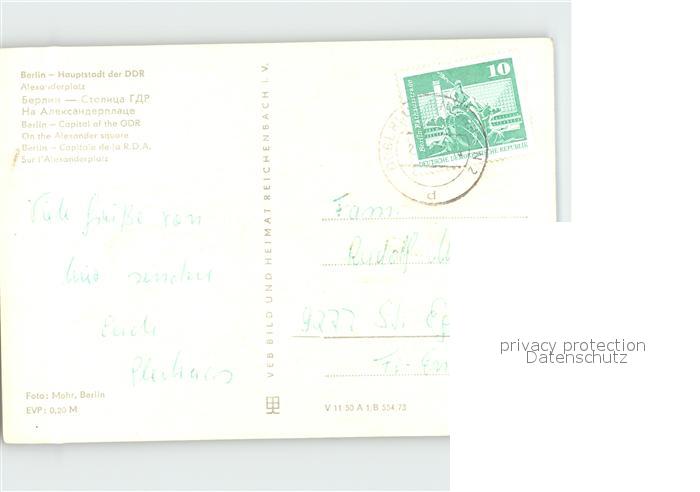 Berlin – Hauptstadt der DDR
Alexanderplatz
Берлин — Столица ГДР
На Александерплаце
Berlin – Capital of the GDR
On the Alexander square
Berlin – Capitale de la R.D.A.
Sur l'Alexanderplatz
Viele Grüße von
senden
Euch
Foto: Mohr, Berlin
EVP: 0,20 M
VEB BILD UND HEIMAT REICHENBACH I. V.
10
DEUTSCHE DEMOKRATISCHE REPUBLIK
Fam.
Rudolf
St. Eg
V 11 50 A 1/B 554/73
privacy protection
Datenschutz